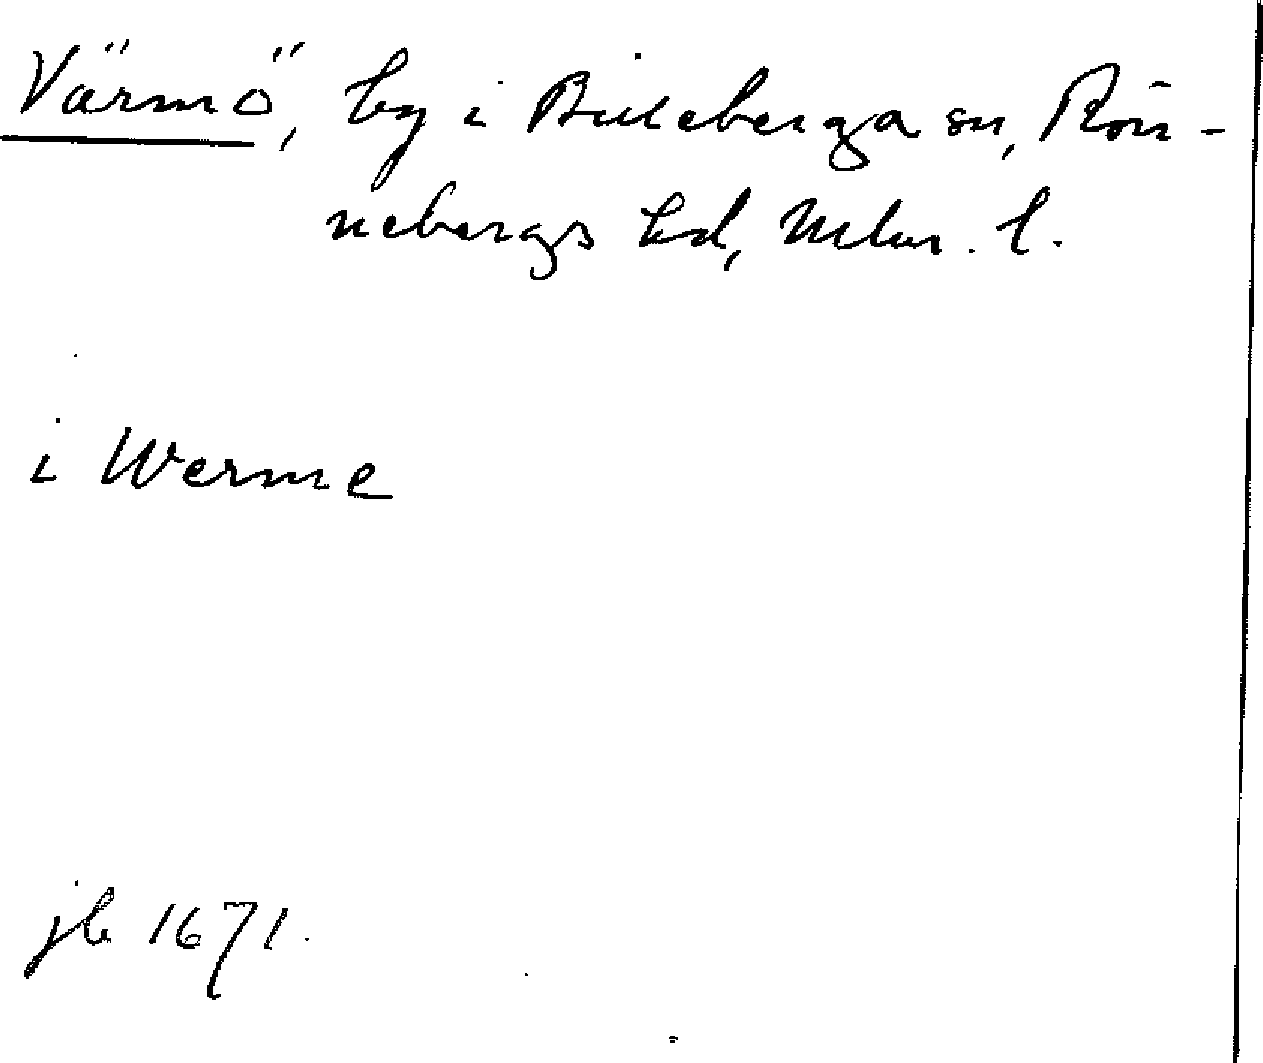 Värmö, by i Billeberga sn, Rön-
nebergs hd, Mlm. l.
i Werme
jb 1671.